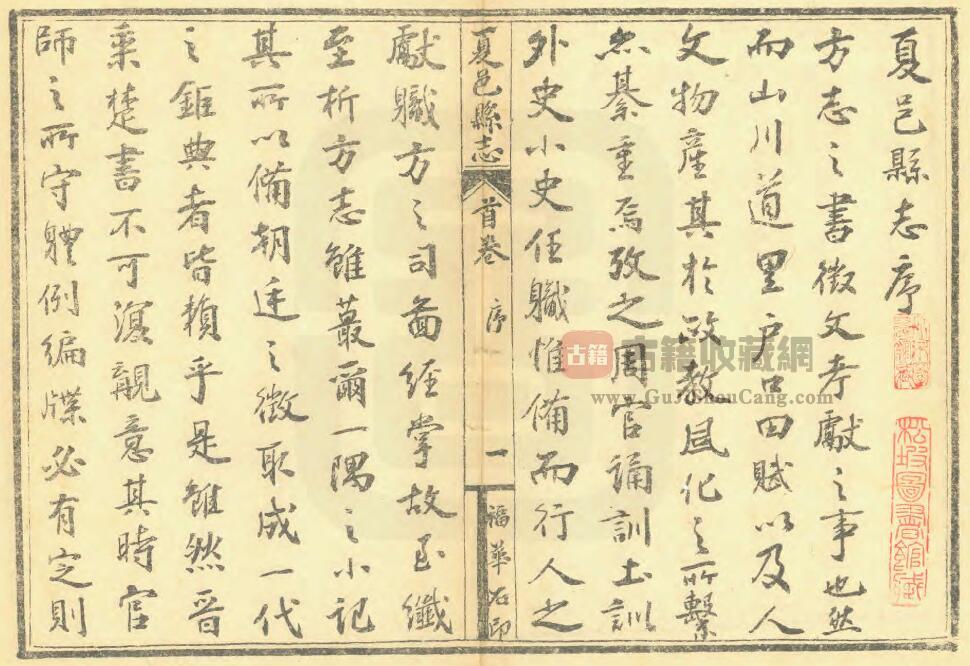 夏邑縣志序
方志之書徵文考獻之事也然
而山川道里户口田賦以及人
文物產其於政教風化之所繫
尒綦重焉攷之周官誦訓土訓
外史小史任職惟備而行人之
夏邑縣志
首卷
序
一
福華石印
獻職方之司啚經掌故至纖
至析方志雖蕞爾一隅之小記
其所以備朝廷之徵取成一代
之鉅典者皆賴乎是雖然晉
乗楚書不可濅覩意其時官
師之所守體例編牒必有定則
松坡圖書館藏
古籍
古籍收藏網
www.GuJiShouCang.com